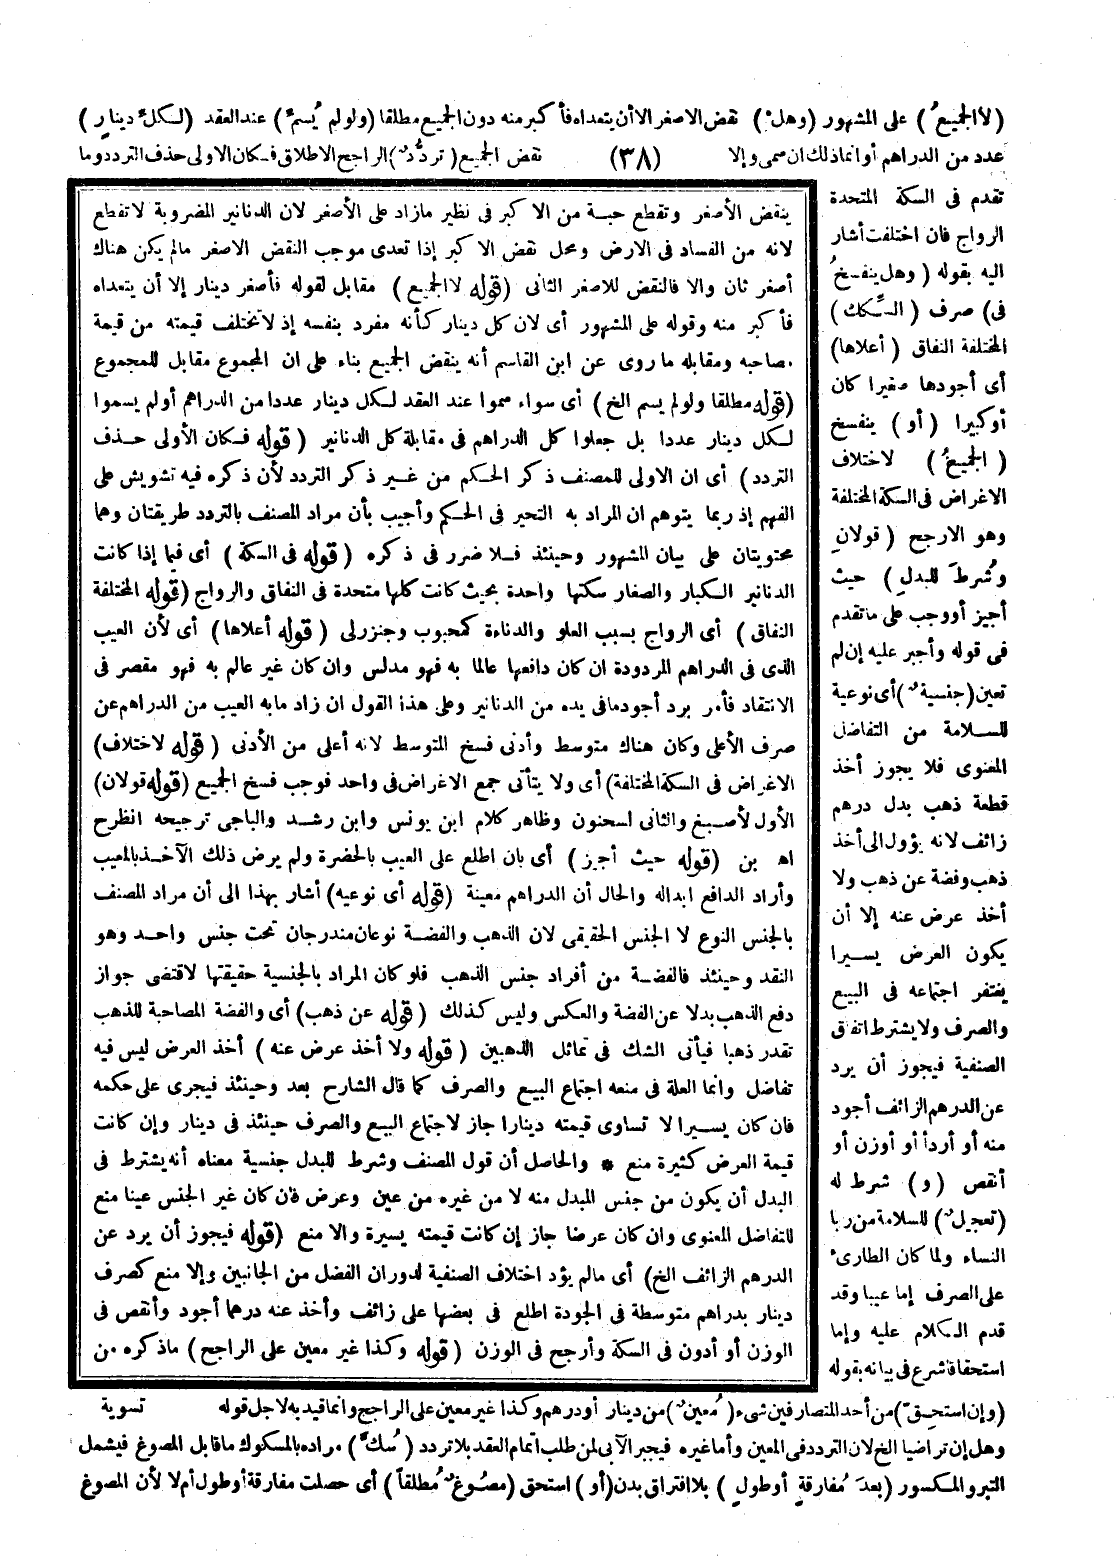 (لا الجميعُ) على المشهور (وهلْ) نقض الاصغر الا أن يتعداه فأكبر منه دون الجميع مطلقا (ولو لم يُسمّ) عند العقد (لكلّ دينارٍ)
عدد من الدراهم أو انما ذلك ان سمى والا (٣٨) نقض الجميع (تردُّد) الراجح الاطلاق فكان الاولى حذف التردد وما
تقدم فى السكة المتحدة
الرواج فان اختلفت أشار
اليه بقوله (وهل ينفسخُ
فى) صرف (السِّكك)
المختلفة النفاق (أعلاها)
أى أجودها صغيرا كان
أو كبيرا (أو) ينفسخ
(الجميعُ) لاختلاف
الاغراض فى السكة المختلفة
وهو الارجح (قولانِ
وشُرط للبدل) حيث
أجيز أو وجب على ما تقدم
فى قوله وأجبر عليه إن لم
تعين (جنسية) أى نوعية
للسلامة من التفاضل
المعنوى فلا يجوز أخذ
قطعة ذهب بدل درهم
زائف لانه يؤول الى أخذ
ذهب وفضة عن ذهب ولا
أخذ عرض عنه إلا أن
يكون العرض يسيرا
يغتفر اجتماعه فى البيع
والصرف ولا يشترط اتفاق
الصنفية فيجوز أن يرد
عن الدرهم الزائف أجود
منه أو أردأ أو أوزن أو
أنقص (و) شرط له
(تعجيل) للسلامة من ربا
النساء ولما كان الطارىء
على الصرف إما عيبا وقد
قدم الكلام عليه وإما
استحقاقا شرع فى بيانه بقوله
(وإن استحق) من أحد المتصارفين شىء (مُعين) من دينار أو درهم وكذا غير معين على الراجح وانما قيد به لاجل قوله تسوية
وهل إن تراضيا الخ لان التردد فى المعين وأما غيره فيجبر الآبى لمن طلب اتمام العقد بلا تردد (سُكّ) مراده بالمسكوك ما قابل المصوغ فيشمل
التبر والمكسور (بعدَ مُفارقةٍ أو طولٍ) بلا افتراق بدن (أو) استحق (مصُوغ مُطلقاً) أى حصلت مفارقة أو طول أم لا لأن المصوغ
ينقض الأصغر وتقطع حبة من الاكبر فى نظير ما زاد على الأصغر لان الدنانير المضروبة لا تقطع
لانه من الفساد فى الارض ومحل نقض الاكبر إذا تعدى موجب النقض الاصغر ما لم يكن هناك
أصغر ثان والا فالنقض للاصغر الثانى (قوله لا الجميع) مقابل لقوله فأصغر دينار إلا أن يتعداه
فأكبر منه وقوله على المشهور أى لان كل دينار كأنه مفرد بنفسه إذ لا تختلف قيمته من قيمة
صاحبه ومقابله ما روى عن ابن القاسم أنه ينقض الجميع بناء على ان المجموع مقابل للمجموع
(قوله مطلقا ولو لم يسم الخ) أى سواء سموا عند العقد لكل دينار عددا من الدراهم أو لم يسموا
لكل دينار عددا بل جعلوا كل الدراهم فى مقابلة كل الدنانير (قوله فكان الأولى حذف
التردد) أى ان الاولى للمصنف ذكر الحكم من غير ذكر التردد لأن ذكره فيه تشويش على
الفهم إذ ربما يتوهم ان المراد به التحير فى الحكم وأجيب بأن مراد المصنف بالتردد طريقتان وهما
محتويتان على بيان المشهور وحينئذ فلا ضرر فى ذكره (قوله فى السكة) أى فيما إذا كانت
الدنانير الكبار والصغار سكتها واحدة بحيث كانت كلها متحدة فى النفاق والرواج (قوله المختلفة
النفاق) أى الرواج بسبب العلو والدناءة كمحبوب وجنزرلى (قوله أعلاها) أى لأن العيب
الذى فى الدراهم المردودة ان كان دافعها عالما به فهو مدلس وان كان غير عالم به فهو مقصر فى
الانتقاد فأمر برد أجود ما فى يده من الدنانير وعلى هذا القول ان زاد ما به العيب من الدراهم عن
صرف الأعلى وكان هناك متوسط وأدنى فسخ المتوسط لانه أعلى من الأدنى (قوله لاختلاف)
الاغراض فى السكة المختلفة) أى ولا يتأتى جمع الاغراض فى واحد فوجب فسخ الجميع (قوله قولان)
الأول لأصبغ والثانى لسحنون وظاهر كلام ابن يونس وابن رشد والباجى ترجيحه انظر ح
اه بن (قوله حيث أجيز) أى بان اطلع على العيب بالحضرة ولم يرض ذلك الآخذ بالمعيب
وأراد الدافع ابداله والحال أن الدراهم معينة (قوله أى نوعيه) أشار بهذا الى أن مراد المصنف
بالجنس النوع لا الجنس الحقيقى لان الذهب والفضة نوعان مندرجان تحت جنس واحد وهو
النقد وحينئذ فالفضة من أفراد جنس الذهب فلو كان المراد بالجنسية حقيقتها لاقتضى جواز
دفع الذهب بدلا عن الفضة والعكس وليس كذلك (قوله عن ذهب) أى والفضة المصاحبة للذهب
تقدر ذهبا فيأتى الشك فى تماثل الذهبين (قوله ولا أخذ عرض عنه) أخذ العرض ليس فيه
تفاضل وانما العلة فى منعه اجتماع البيع والصرف كما قال الشارح بعد وحينئذ فيجرى على حكمه
فان كان يسيرا لا تساوى قيمته دينارا جاز لاجتماع البيع والصرف حينئذ فى دينار وإن كانت
قيمة العرض كثيرة منع * والحاصل أن قول المصنف وشرط للبدل جنسية معناه أنه يشترط فى
البدل أن يكون من جنس المبدل منه لا من غيره من عين وعرض فان كان غير الجنس عينا منع
للتفاضل المعنوى وان كان عرضا جاز إن كانت قيمته يسيرة والا منع (قوله فيجوز أن يرد عن
الدرهم الزائف الخ) أى ما لم يؤد اختلاف الصنفية لدوران الفضل من الجانبين وإلا منع كصرف
دينار بدراهم متوسطة فى الجودة اطلع فى بعضها على زائف وأخذ عنه درهما أجود وأنقص فى
الوزن أو أدون فى السكة وأرجح فى الوزن (قوله وكذا غير معين على الراجح) ما ذكره من